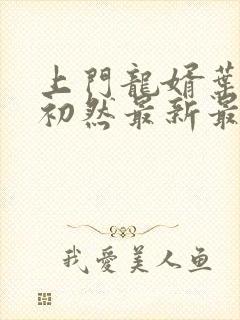 上門龍婿葉
初然最新最
我愛美人鱼